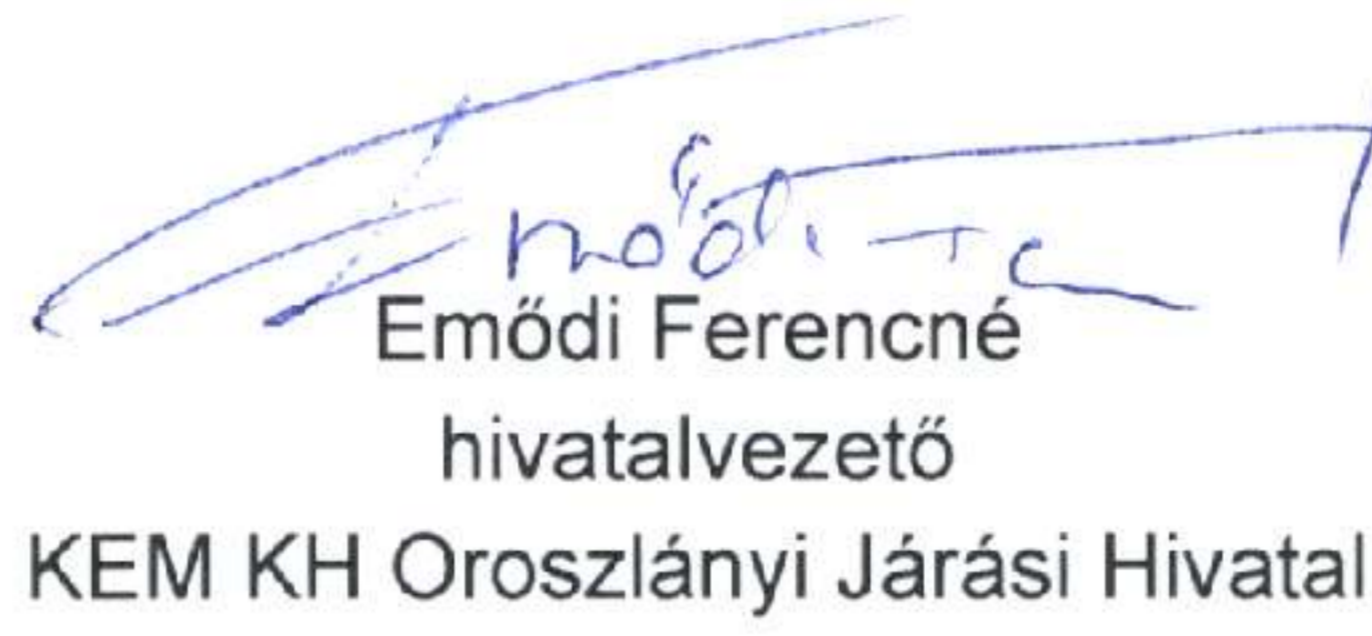 Emődi Ferencné
hivatalvezető
KEM KH Oroszlányi Járási Hivatal